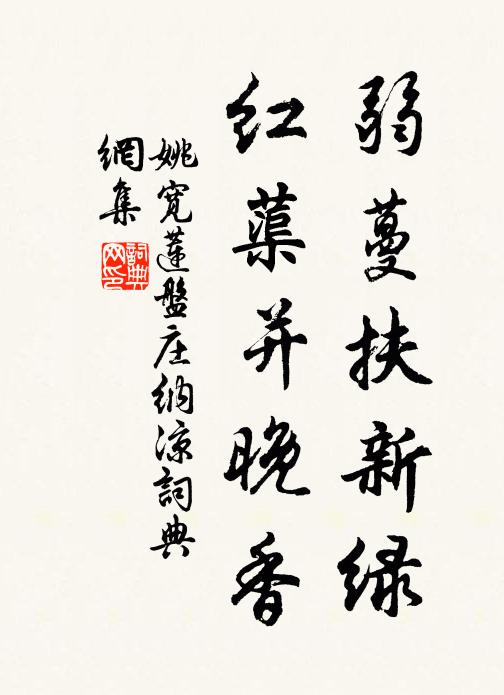 弱蔓扶新绿
红蕖并晚香
姚宽莲盤庄纳凉詞典
網集
詞典网印